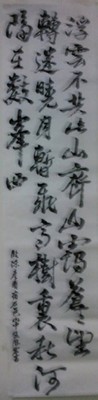 浮雲不共此山齊山靄蒼々望
轉迷曉月暫飛高樹裏秋河
隔在數峯西